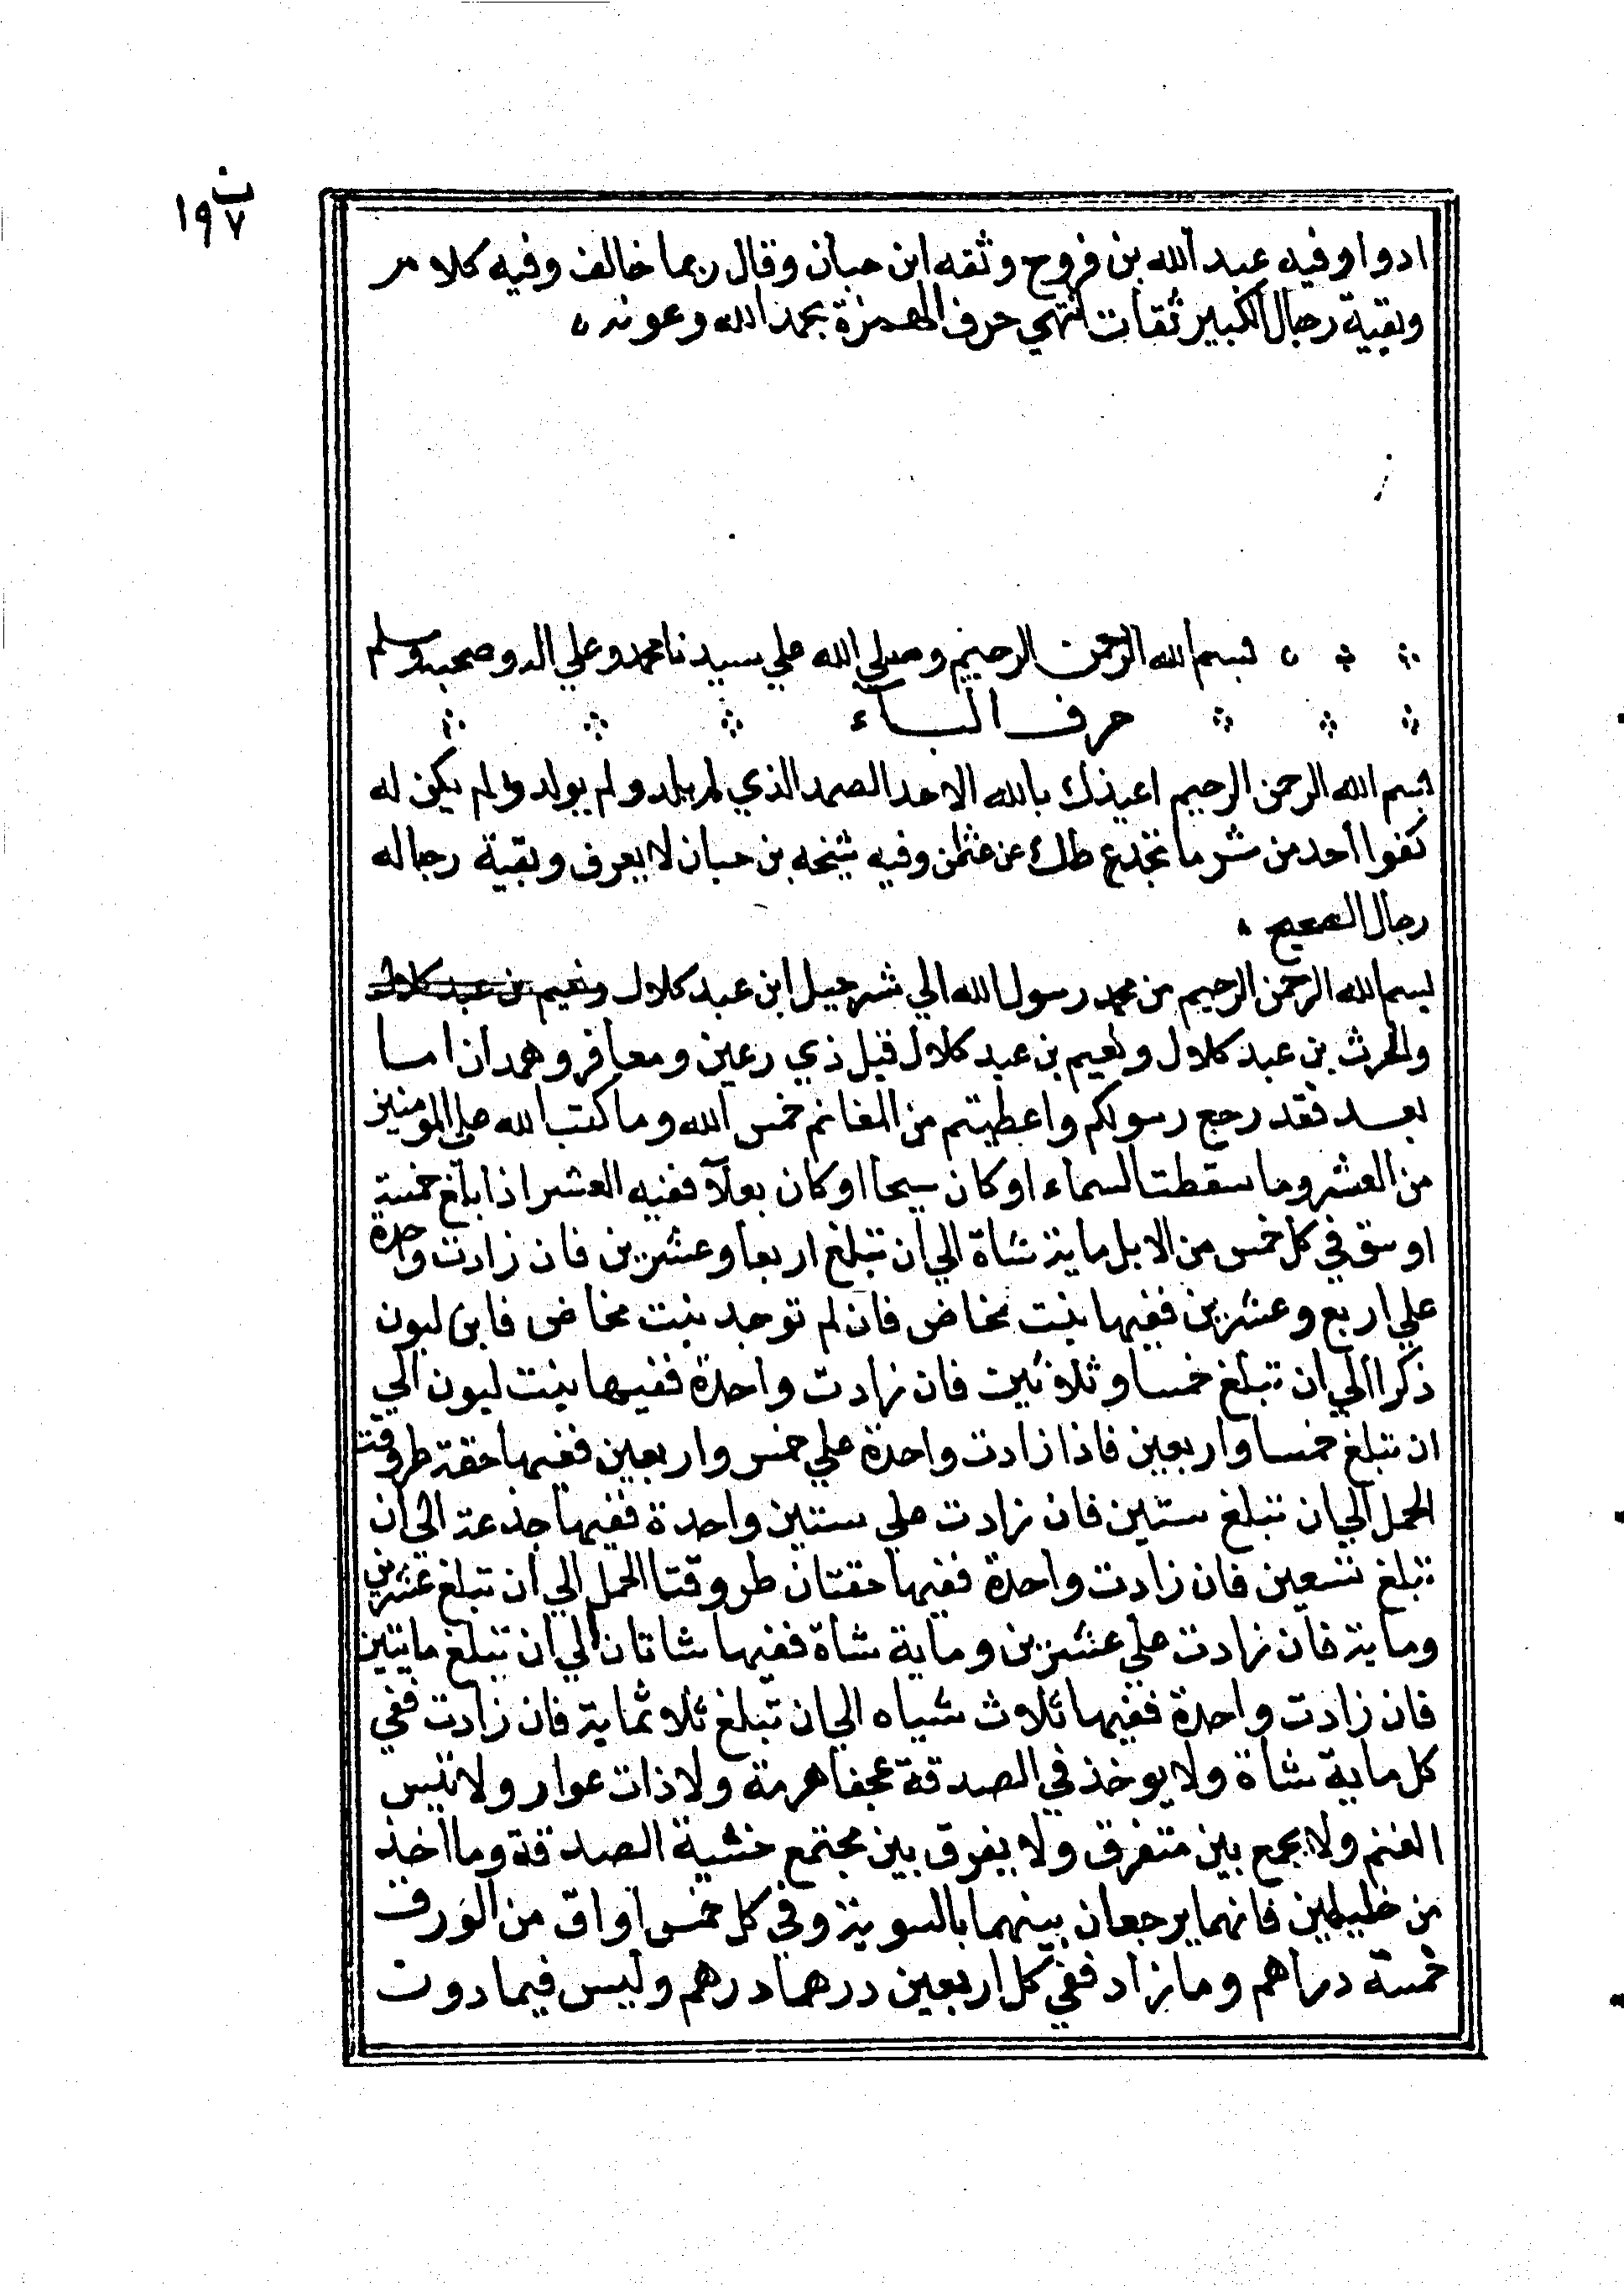 ب
١٩٧
ادوا وفيه عبد الله بن فروح وثقه ابن حبان وقال ربما خالف وفيه كلام
وبقية رجال الكبير ثقات انتهي حرف الهمزة بحمد الله وعونه
بسم الله الرحمن الرحيم وصلي الله علي سيدنا محمد وعلي اله وصحبه وسلم
حرف البآء
بسم الله الرحمن الرحيم اعيذك بالله الاحد الصمد الذي لم يلد ولم يولد ولم يكن له
كفوا احد من شر ما تجد ع طك عن عثمن وفيه بن حبان لا يعرف وبقية رجاله
رجال الصحيح
بسم الله الرحمن الرحيم من محمد رسول الله الي شرحبيل ابن عبد كلال ونعيم بن عبد كلال
والحرث بن عبد كلال ونعيم بن عبد كلال قيل ذي رعين ومعافر وهمدان اما
بعد فقد رجع رسولكم واعطيتم من المغانم خمس الله وما كتب الله علي المومنين
من العشر وما سقطت السماء او كان سيحا او كان بعلآ ففيه العشر اذا بلغ خمسة
اوسق في كل خمس من الابل ماية شاة الي ان تبلغ اربعا وعشرين فان زادت واحدة
علي اربع وعشرين ففيها بنت مخاض فان لم توجد بنت مخاض فابن لبون
ذكرا الي ان تبلغ خمسا وثلاثين فان زادت واحدة ففيها بنت لبون الي
ان تبلغ خمسا واربعين فاذا زادت واحدة علي خمس واربعين ففيها حقة طروقت
الحمل الي ان تبلغ ستين فان زادت علي ستين واحدة ففيها جذعة الي ان
تبلغ تسعين فان زادت واحدة ففيها حقتان طروقتا الحمل الي ان تبلغ عشرين
وماية فان زادت علي عشرين وماية شاة ففيها شاتان الي ان تبلغ مايتين
فان زادت واحدة ففيها ثلاث شياه الي ان تبلغ ثلاثماية فان زادت ففي
كل ماية شاة ولا يوخذ في الصدقة عجفا هرمة ولا ذات عوار ولا تيس
الغنم ولا يجمع بين متفرق ولا يفرق بين مجتمع خشية الصدقة وما اخذ
من خليطين فانهما يرجعان بينهما بالسوية وفي كل خمس اواق من الورق
خمسة دراهم وما زاد ففي كل اربعين درهما درهم وليس فيما دون